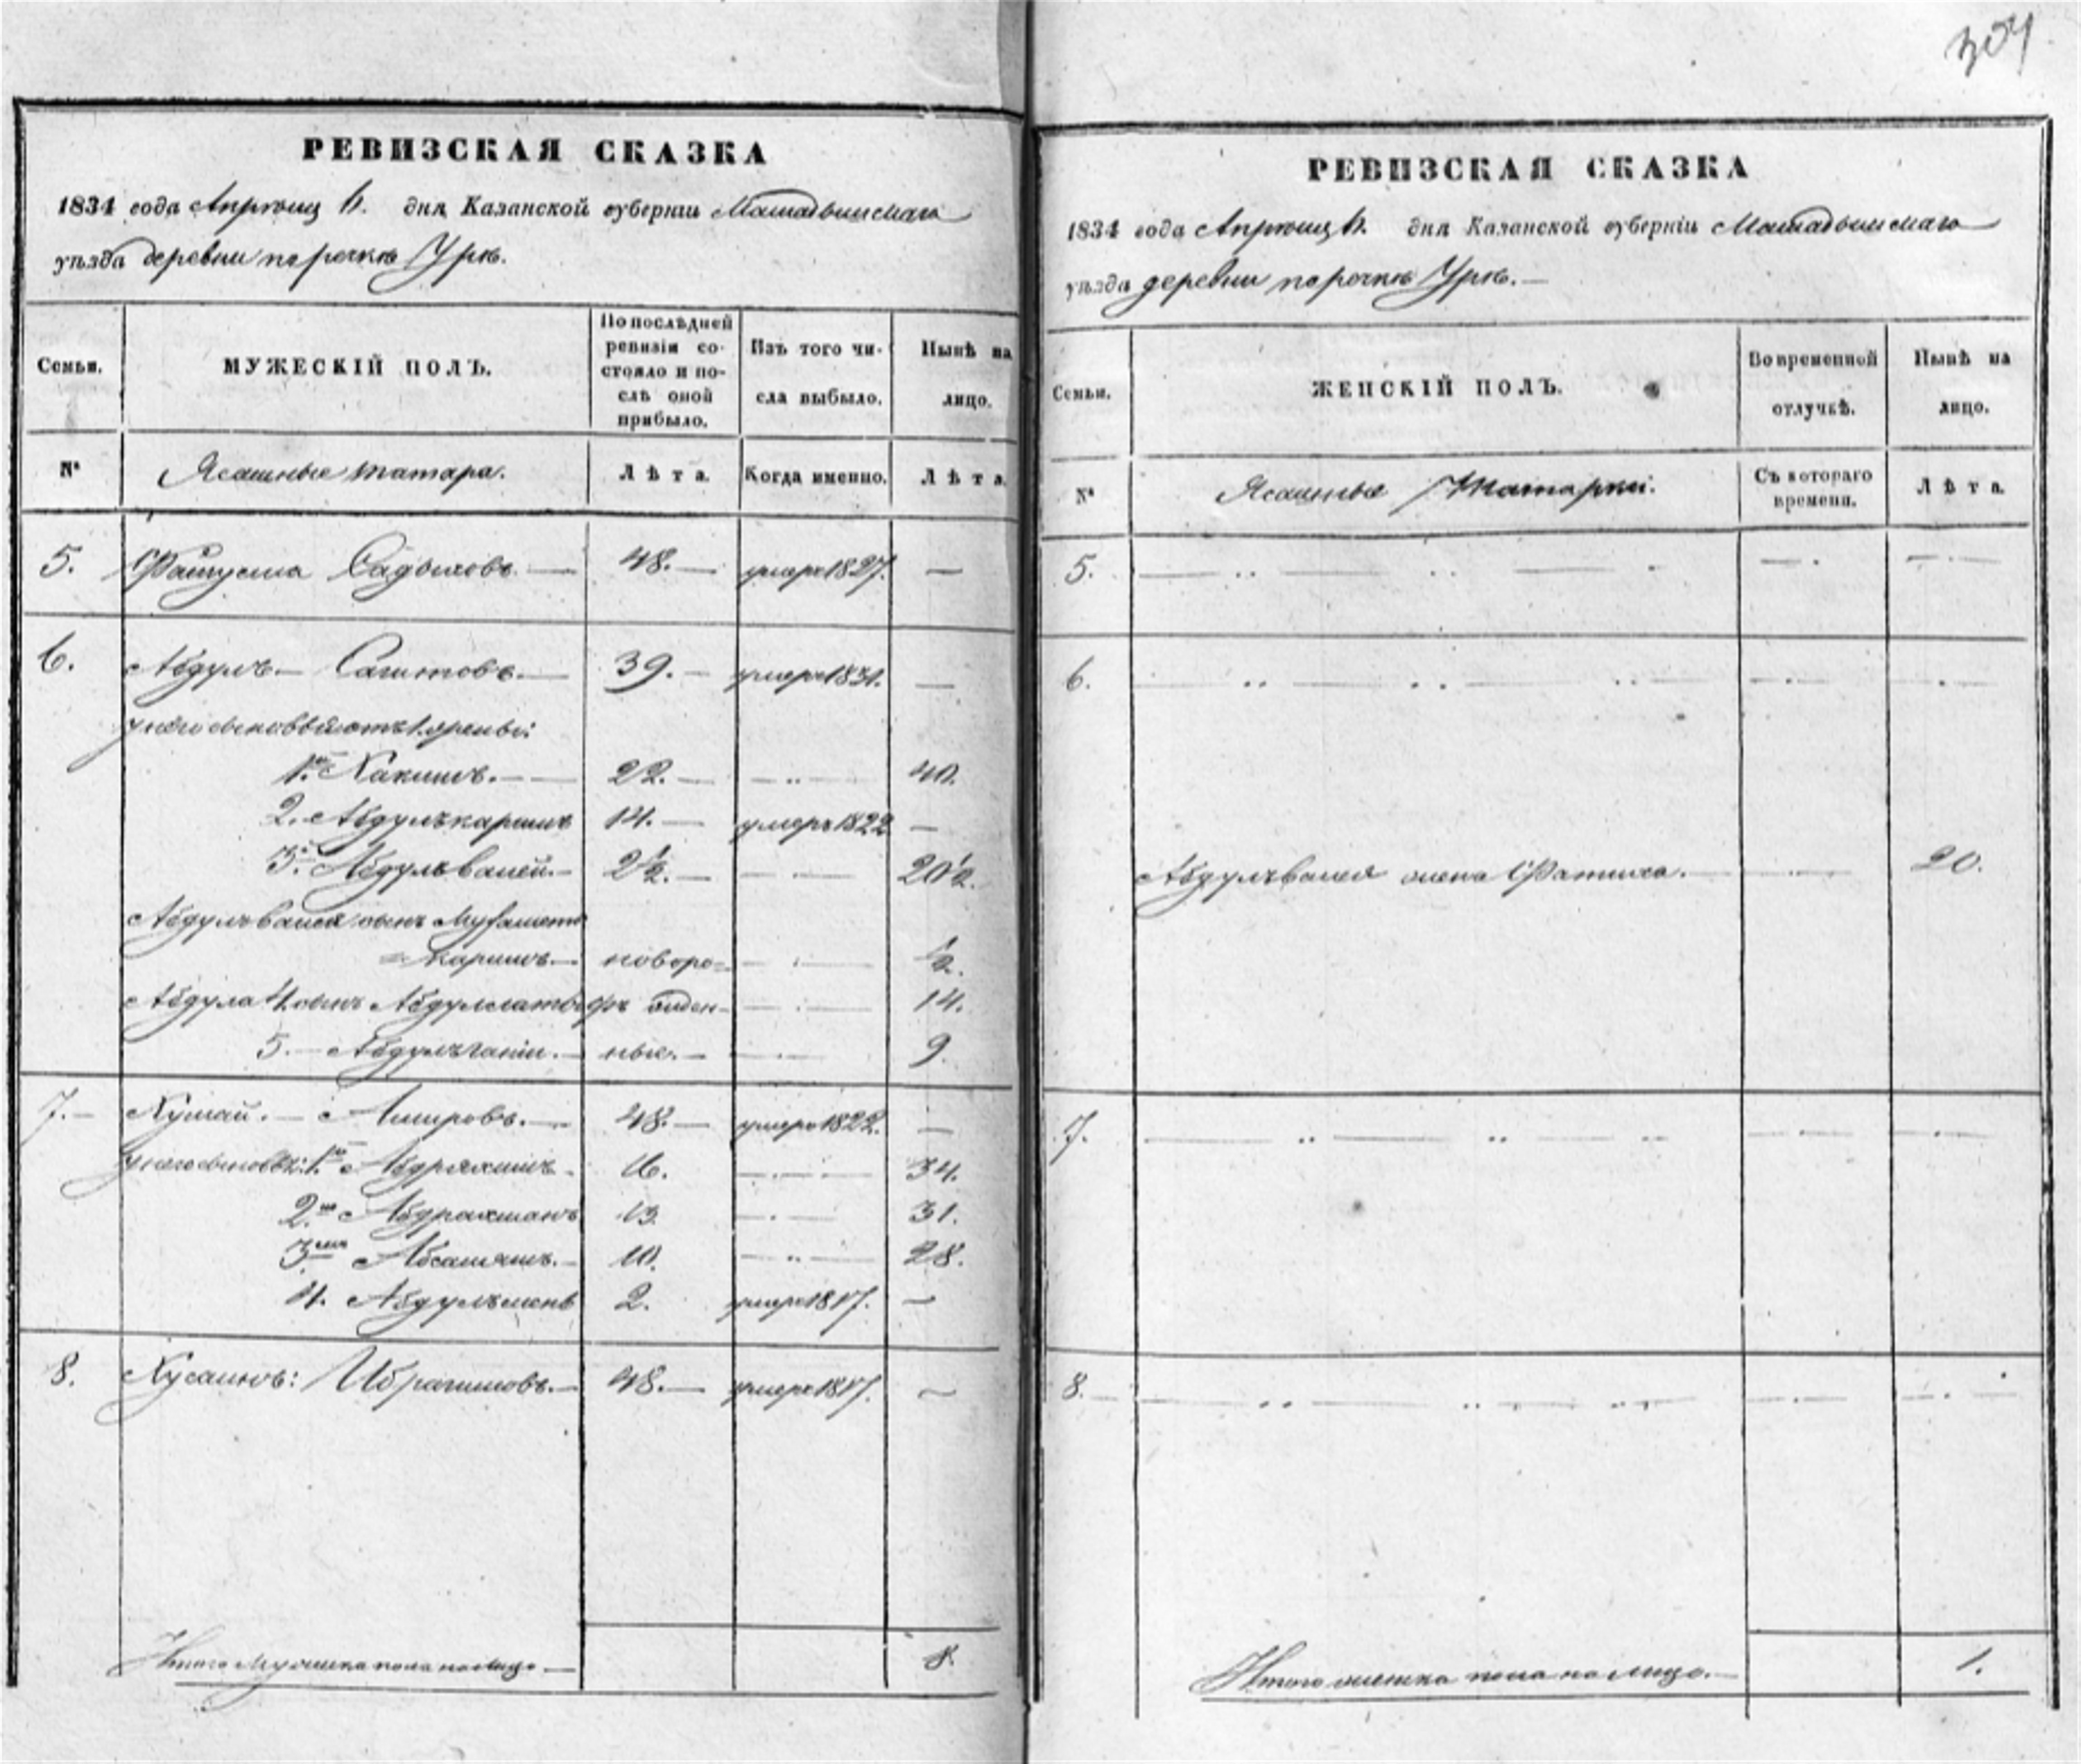 304
РЕВИЗСКАЯ СКАЗКА
1834 года Апреля дня Казанской губерніи Мамадышскаго
уѣзда деревни по речкѣ Урѣ.
Семьи.
МУЖЕСКІЙ ПОЛЪ.
По послѣдней ревизіи со-
стояло и по-
слѣ оной
прибыло.
Изъ того чи-
сла выбыло.
Нынѣ на
лицо.
№
Ясашные татара.
Лѣта.
Когда именно.
Лѣта.
5. Садыковъ — 48. — умеръ 1827. —
6. Абдулъ — Сагитовъ. — 39. — умеръ 1831. —
у него сыновья отъ 1. жены:
1й Хакимъ. — 22. — 40.
2. Абдулъкаримъ 14. — умеръ 1822 —
3й Абдулъвалей. — 2½. — 20½.
Абдулъвалея сынъ Мухамет
=каримъ — новоро= ½.
Абдула 4. сынъ Абдуллатыфъ жден- 14.
5. — Абдулъгани. — ные. — 9.
7. — Кумай. — Амировъ. — 48. — умеръ 1822. —
у него сыновья: 1й Абдряхимъ 16. 34.
2й Абдрахманъ 13. 31.
3й Абсалямъ. 10. 28.
4. 2. умеръ 1817. —
8. Хусаинъ: Ибрагимовъ. — 48. — умеръ 1817. —
Итого мужеска пола на лицо — 8.
РЕВИЗСКАЯ СКАЗКА
1834 года Апреля дня Казанской губерніи Мамадышскаго
уѣзда деревни по речкѣ Урѣ. —
Семьи.
ЖЕНСКІЙ ПОЛЪ.
Во временной
отлучкѣ.
Нынѣ на
лицо.
№
Ясашные Татарки.
Съ котораго
времени.
Лѣта.
5.
6.
Абдулъвалея жена Фатиха. 20.
7.
8.
Итого женска пола на лицо. — 1.